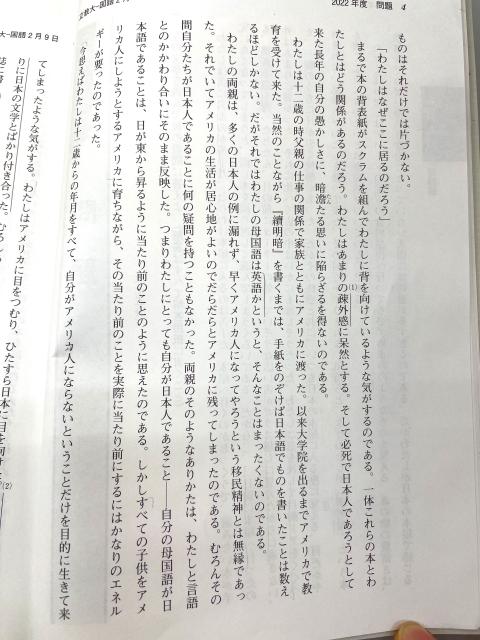 2022年度 問題 4
ものはそれだけでは片づかない。
「わたしはなぜここに居るのだろう」
まるで本の背表紙がスクラムを組んでわたしに背を向けているような気がするのである。一体これらの本とわ
たしとはどう関係があるのだろう。わたしはあまりの疎外感に呆然とする。そして必死で日本人であろうとして
(1)
来た長年の自分の愚かしさに、暗澹たる思いに陥らざるを得ないのである。
わたしは十二歳の時父親の仕事の関係で家族とともにアメリカに渡った。以来大学院を出るまでアメリカで教
育を受けて来た。当然のことながら『續明暗』を書くまでは、手紙をのぞけば日本語でものを書いたことは数え
るほどしかない。だがそれではわたしの母国語は英語かというと、そんなことはまったくないのである。
わたしの両親は、多くの日本人の例に漏れず、早くアメリカ人になってやろうという移民精神とは無縁であっ
た。それでいてアメリカの生活が居心地がよいのでだらだらとアメリカに残ってしまったのである。むろんその
間自分たちが日本人であることに何の疑問を持つこともなかった。両親のそのようなありかたは、わたしと言語
とのかかわり合いにそのまま反映した。つまりわたしにとっても自分が日本人であること――自分の母国語が日
本語であることは、日が東から昇るように当たり前のことのように思えたのである。しかしすべての子供をアメ
リカ人にしようとするアメリカに育ちながら、その当たり前のことを実際に当たり前にするにはかなりのエネル
ギーが要ったのであった。
今思えばわたしは十二歳からの年月をすべて、自分がアメリカ人にならないということだけを目的に生きて来
大-国語 2月9日
てしまったような気がする。わたしはアメリカに目をつむり、ひたすら日本に目を向け
(2)
りに日本の文学とばかり付き合った。むろん